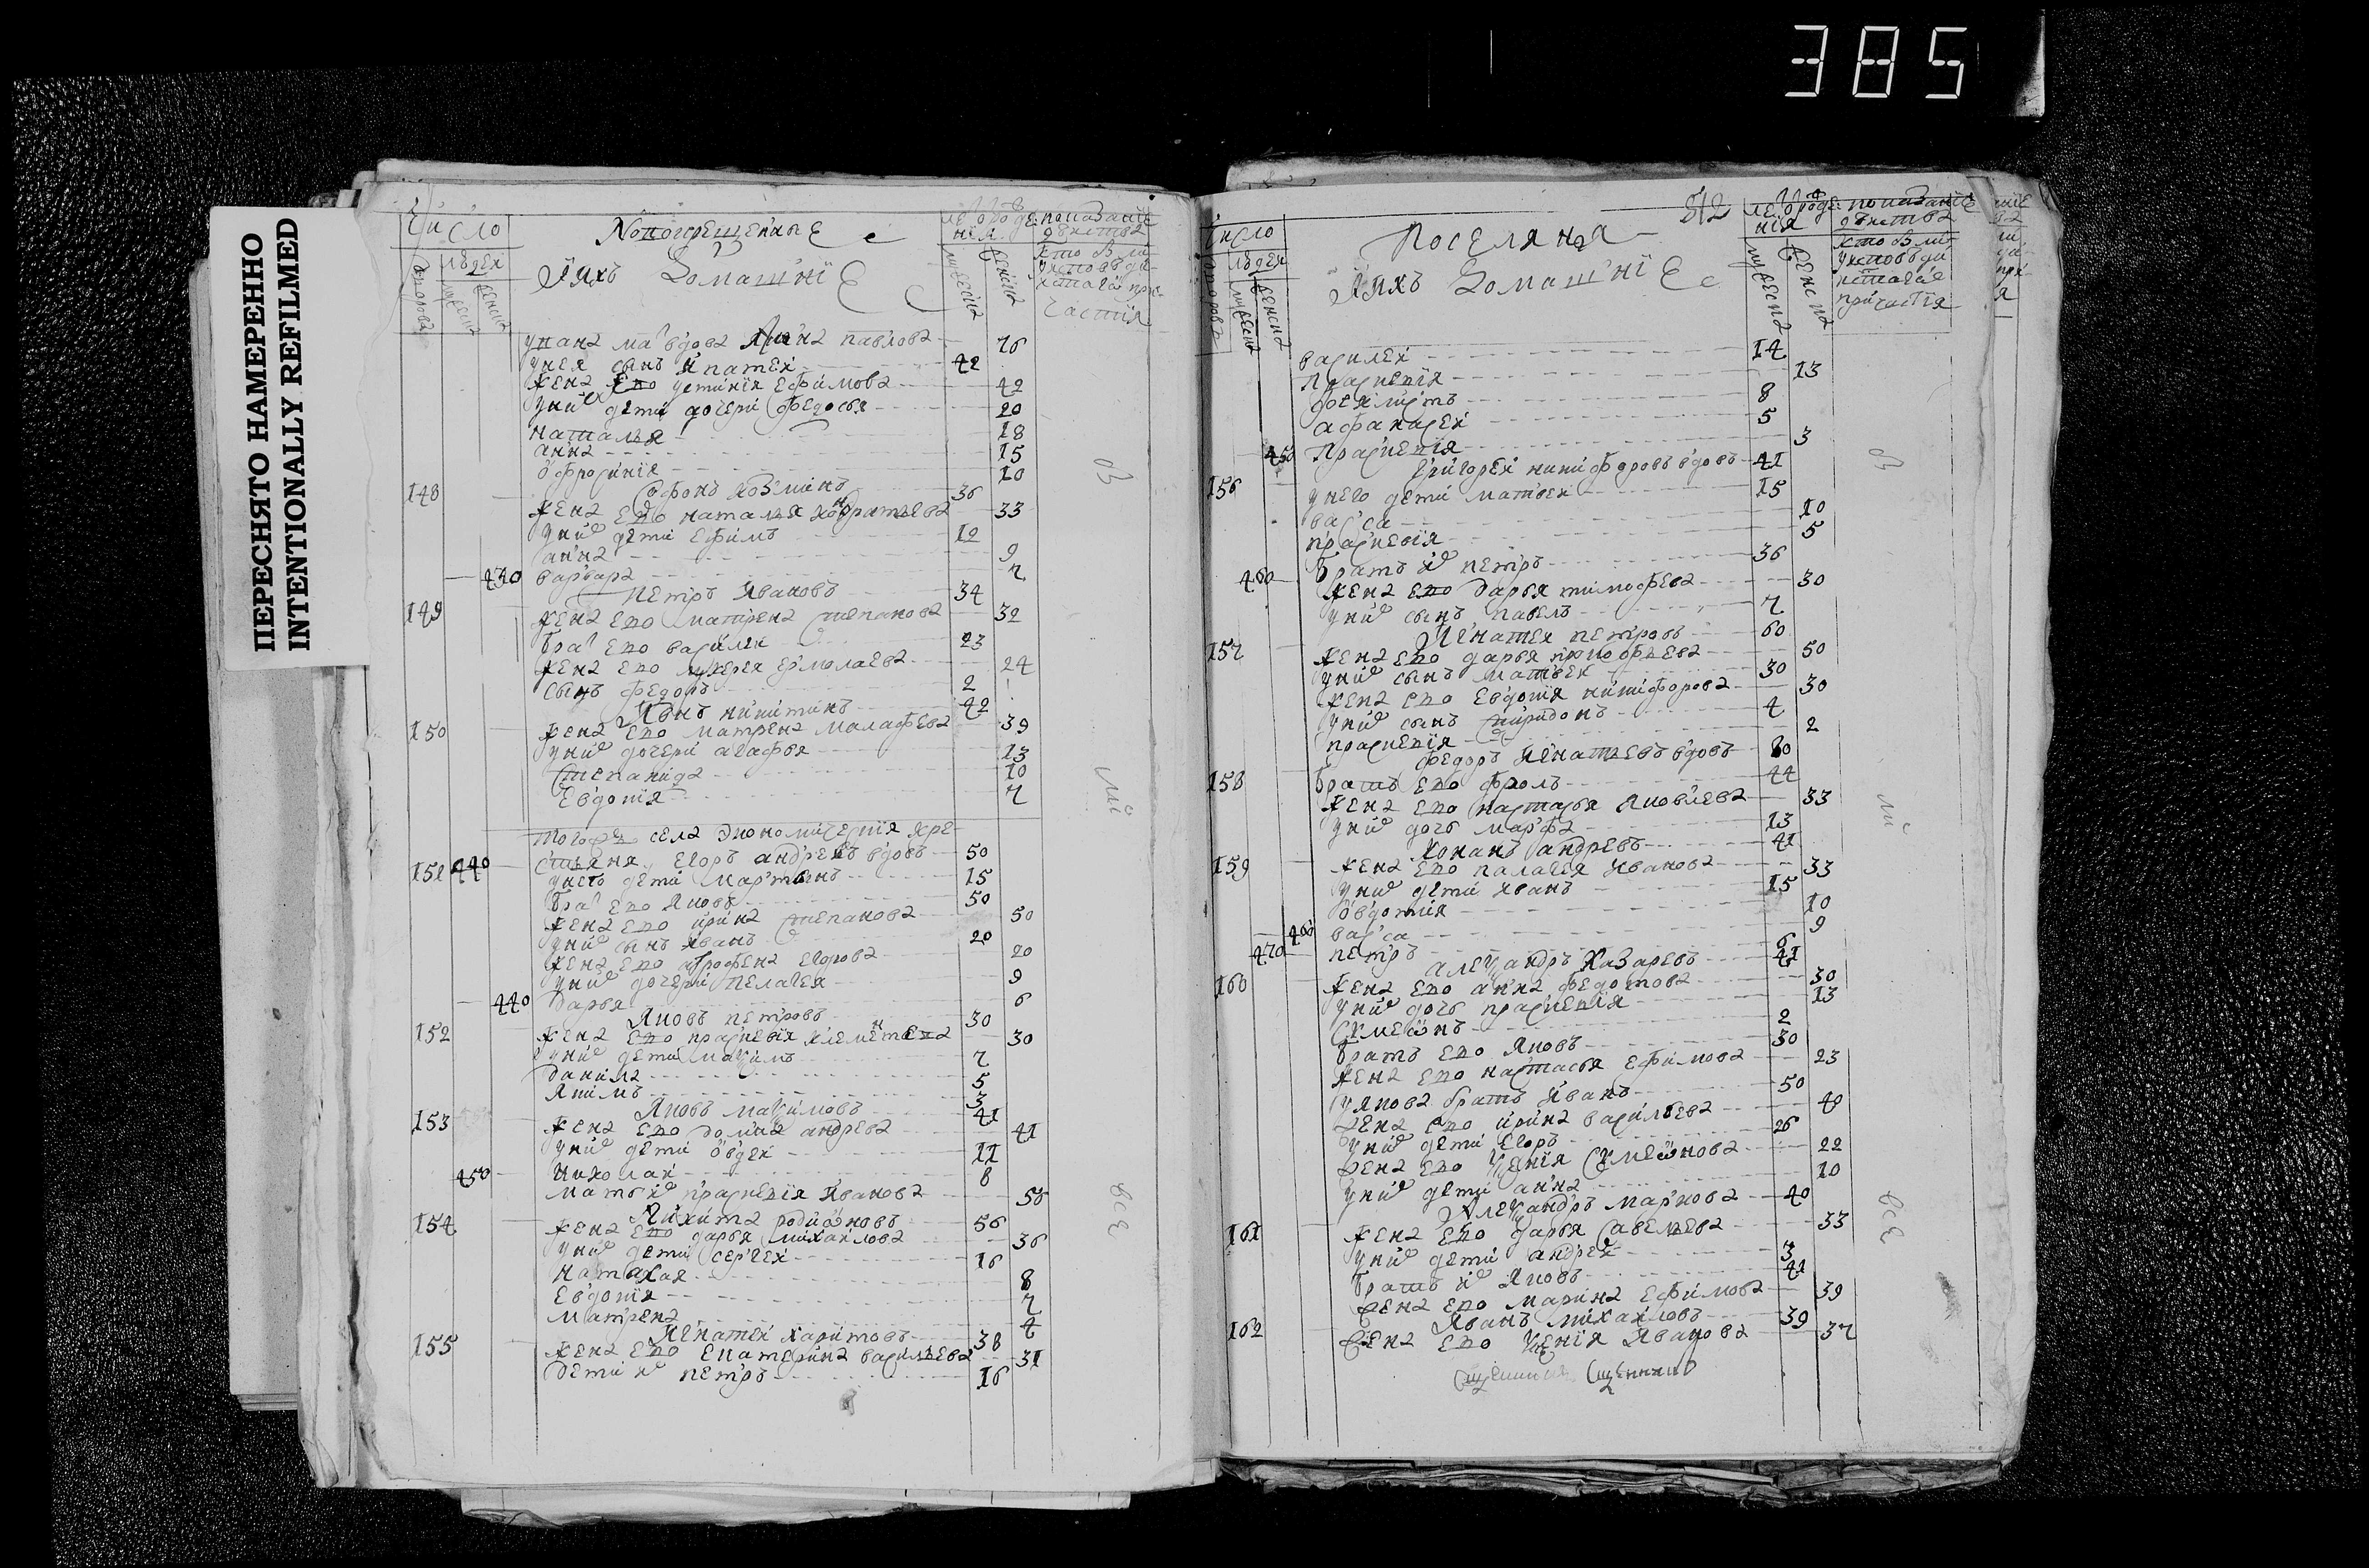 385
ПЕРЕСНЯТО НАМЕРЕННО
INTENTIONALLY REFILMED
Число
Новокрещеные
лет рожде
ния
показание
действа
людей
Ӥ ихъ Домашнїе
кто были
у исповѣди
и святаго при
частия
дворовъ
мужеска
женска
вдова павлова 76
у нея сынъ Ипатей 42
жена ево устинїя Ефимова 42
у них дети дочери федосья 20
наталья 18
анна 15
офросинїя 10
148 Софонъ Козминъ 36
жена ево наталья кондратьева 33
у них дети Ефимъ 12
анна 9
430 варвара 7
149 Петръ Ивановъ 34
жена ево матрена степанова 32
брат ево василеи 23
жена ево Ермолаева 24
сынъ федоръ 2
150 Иванъ никитинъ 42
жена ево матрена малафеева 39
у них дочери агафья 13
степанида 10
Евдокия 7
того ж села экономическия кре
151 440 стьяня Егоръ андреевъ вдовъ 50
у него дети мартынъ 15
брат ево Яковъ 50
жена ево ирина степанова 50
у них сынъ Иванъ 20
жена ево Егорова 20
у них дочери Пелагея 9
440 Дарья 6
152 Яковъ петровъ 30
жена ево праскевїя климентьева 30
у них дети максимъ 7
данила 5
Якимъ 3
153 Яковъ максимовъ 41
жена ево домна андреева 41
у них дети овдеи 11
450 Николаи 8
мать их праскевїя Иванова 58
154 Никита родионовъ 56
жена ево дарья михаилова 36
у них дети сергеи 16
наталья 8
Евдокия 7
матрена 4
155 Игнатеи харитовъ 38
жена ево Екатерина васильева 31
дети их петръ 16
в
ми
все
Число
Поселяня
512
лет рожде
ния
показание
действа
людей
Ӥ ихъ Домашнїе
кто были
у исповѣди
и святаго
причастїя
дворовъ
мужеска
женска
василеи 14
Праскевїя 13
8
афанасеи 5
450 Праскевїя 3
156 Григореи никифоровъ вдовъ 41
у него дети матвеи 15
васса 10
праскевїя 5
460 братъ их петръ 36
жена ево дарья тимофеева 30
у них сынъ павелъ 7
157 Игнатеи петровъ 60
жена ево дарья 50
у них сынъ матвеи 30
жена ево Евдокия никифорова 30
у них сынъ спиридонъ 4
праскевїя 2
158 федоръ Игнатьевъ вдовъ 80
братъ ево фролъ 44
жена ево настасья Яковлева 33
у них дочь марфа 13
159 Кононъ андреевъ 41
жена ево палагея Иванова 33
у них дети Иванъ 15
овдотия 10
460 васса 9
470 петръ 6
160 александръ Казаревъ 41
жена ево анна федотова 30
у них дочь праскевїя 13
Симеонъ 2
братъ ево Яковъ 30
жена ево настасья Ефимова 23
у якова братъ Иванъ 50
жена ево ирина васильева 40
у них дети Егоръ 26
жена ево Ксения Симеонова 22
у них дети анна 10
161 Александръ маркова 40
жена ево дарья савельева 33
у них дети андреи 3
братъ их Яковъ 41
жена ево марина Ефимова 39
162 Иванъ михаиловъ 39
жена ево Ксения Иванова 37
в
ми
все